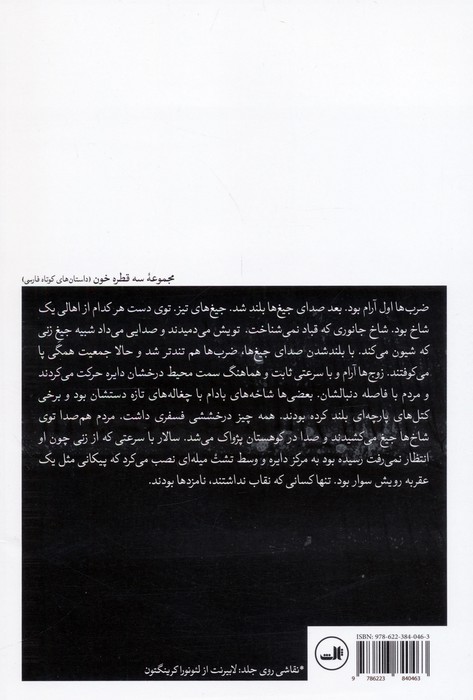 مجموعهٔ سه قطره خون (داستان‌های کوتاه فارسی)
ضرب‌ها اول آرام بود. بعد صدای جیغ‌ها بلند شد. جیغ‌های تیز. توی دست هر کدام از اهالی یک
شاخ بود. شاخ جانوری که قباد نمی‌شناخت. تویش می‌دمیدند و صدایی می‌داد شبیه جیغ زنی
که شیون می‌کند. با بلندشدن صدای جیغ‌ها، ضرب‌ها هم تندتر شد و حالا جمعیت همگی پا
می‌کوفتند. زوج‌ها آرام و با سرعتی ثابت و هماهنگ سمت محیط درخشان دایره حرکت می‌کردند
و مردم با فاصله دنبالشان. بعضی‌ها شاخه‌های بادام با چغاله‌های تازه دستشان بود و برخی
کتل‌های پارچه‌ای بلند کرده بودند. همه چیز درخششی فسفری داشت. مردم هم‌صدا توی
شاخ‌ها جیغ می‌کشیدند و صدا در کوهستان پژواک می‌شد. سالار با سرعتی که از زنی چون او
انتظار نمی‌رفت رسیده بود به مرکز دایره و وسط تشتْ میله‌ای نصب می‌کرد که پیکانی مثل یک
عقربه رویش سوار بود. تنها کسانی که نقاب نداشتند، نامزدها بودند.
*نقاشی روی جلد: لابیرنت از لئونورا کرینگتون
ثالث
ISBN: 978-622-384-046-3
9 786223 840463